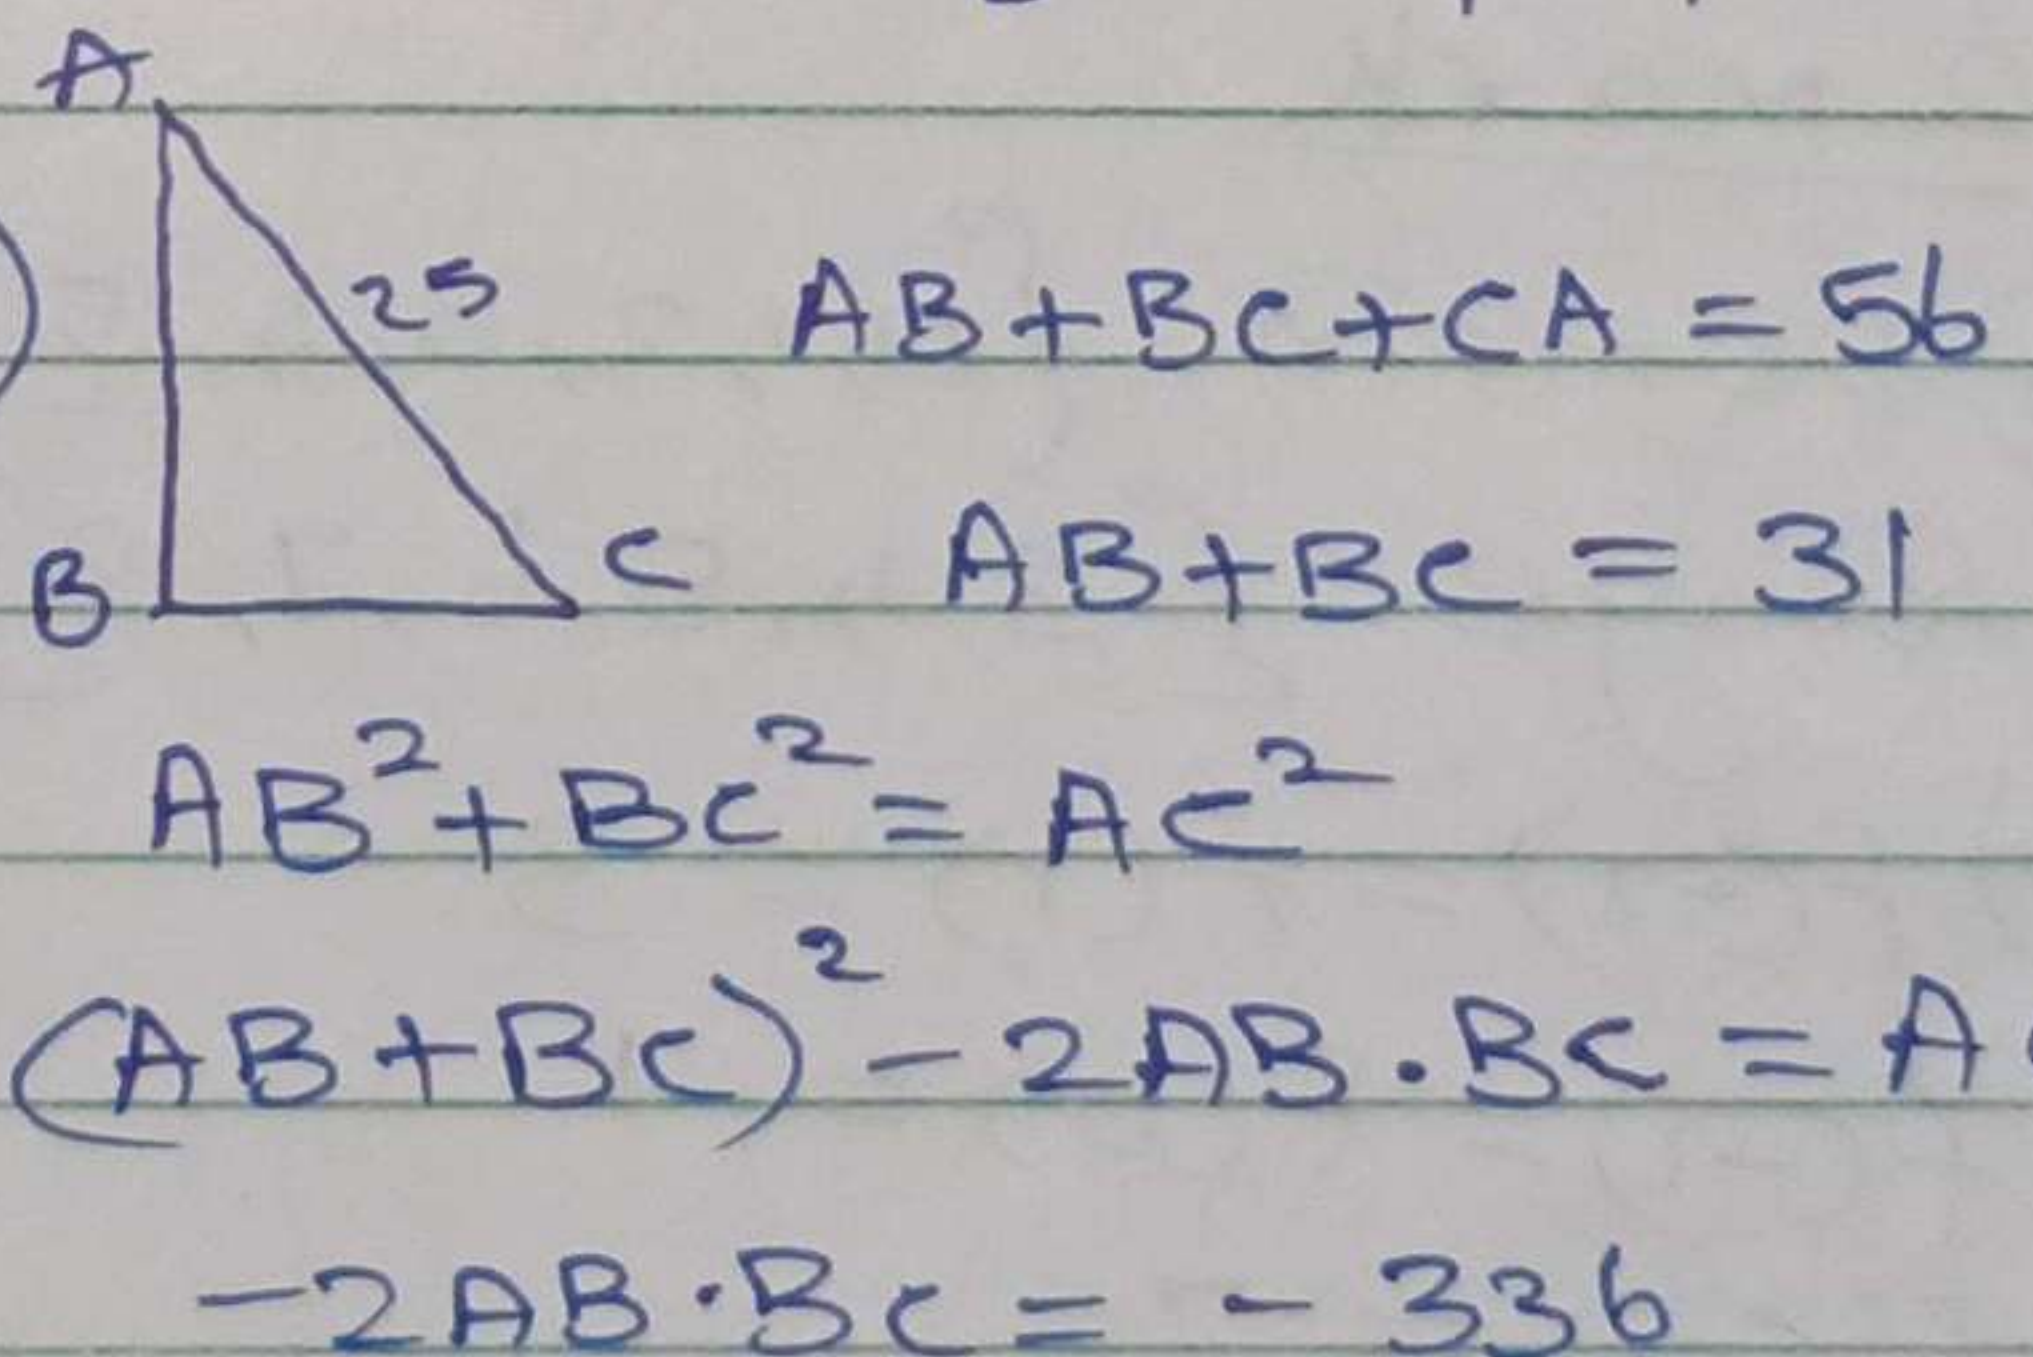 A
25
AB+BC+CA = 56
B
C
AB+BC = 31
AB²+BC² = AC²
(AB+BC)² - 2AB·BC = A
-2AB·BC = - 336